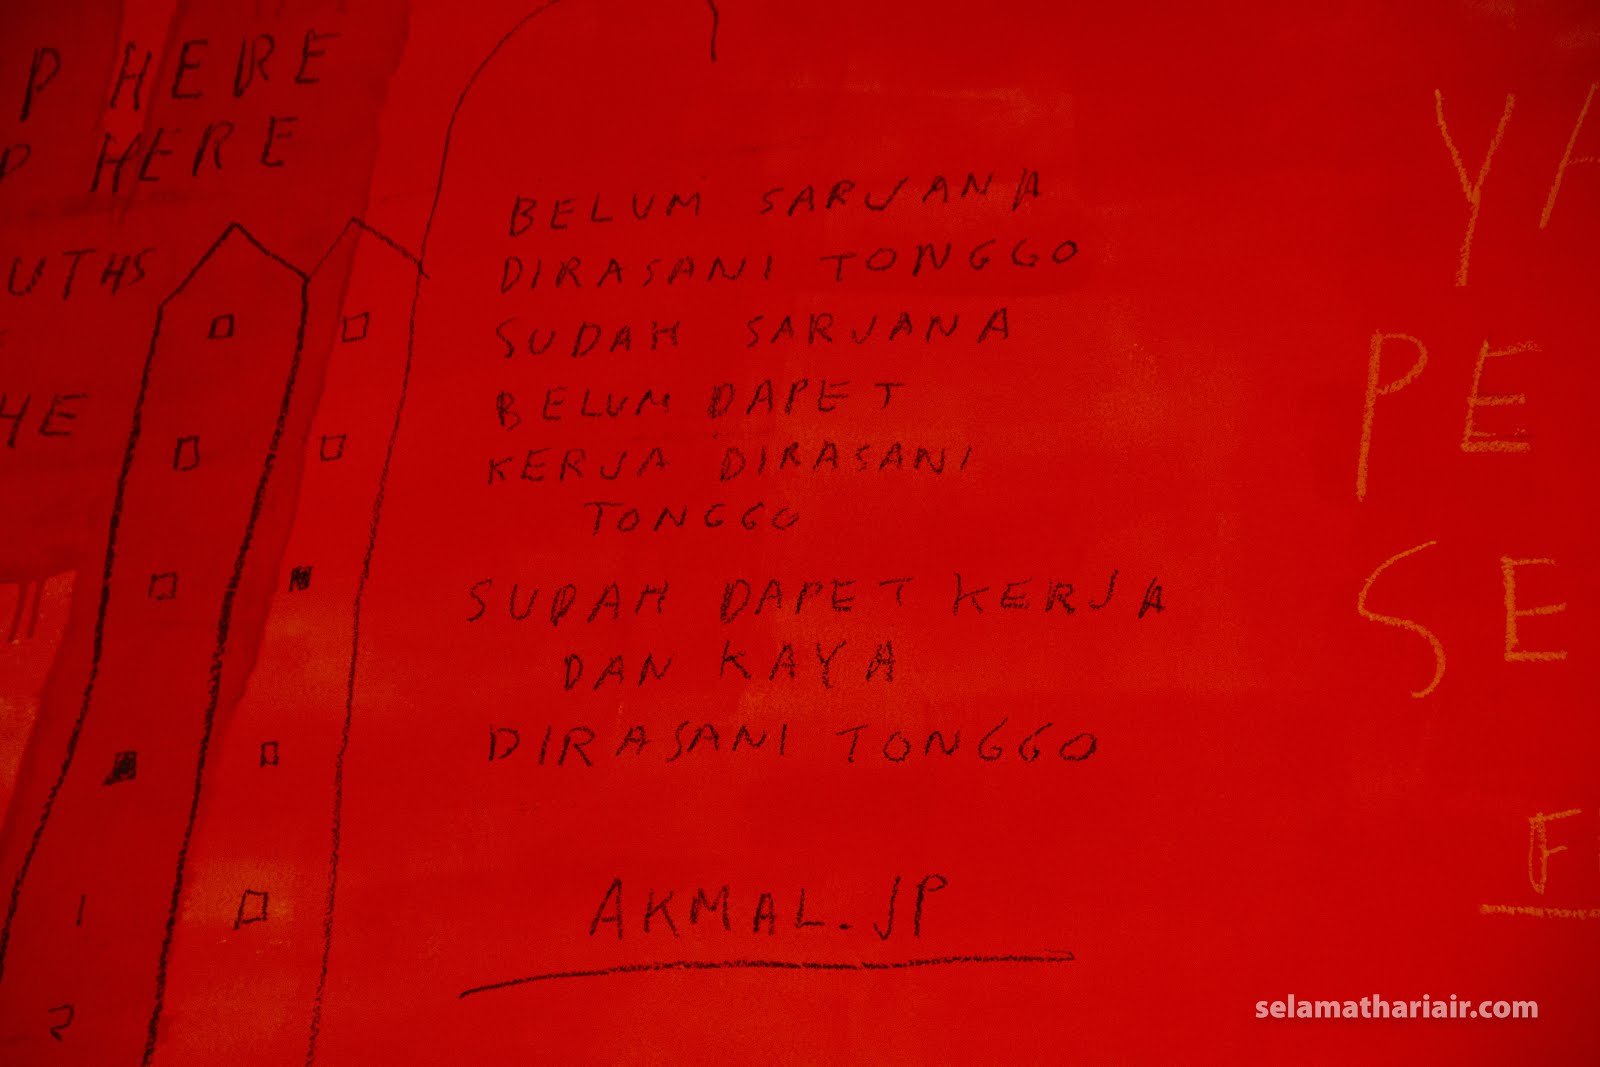 P HERE
P HERE
UTHS
HE
1
2
BELUM SARJANA
DIRASANI TONGGO
SUDAH SARJANA
BELUM DAPET
KERJA DIRASANI
TONGGO
SUDAH DAPET KERJA
DAN KAYA
DIRASANI TONGGO
AKMAL.JP
YA
PE
SE
selamathariair.com